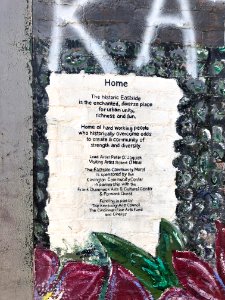 KA
Home
The historic Eastside
is the enchanted, diverse place
for urban unity,
richness and fun.
Home of hard working people
who historically overcome odds
to create a community of
strength and diversity.
Lead Artist Peter
Making Artist
"The Eastside Community Mural"
is sponsored by the
Covington Community Center
in partnership with the
Frank Duveneck Arts & Cultural Center
&
Funding in part by
The Kentucky Arts Council
The Cincinnati Fine Arts Fund
and